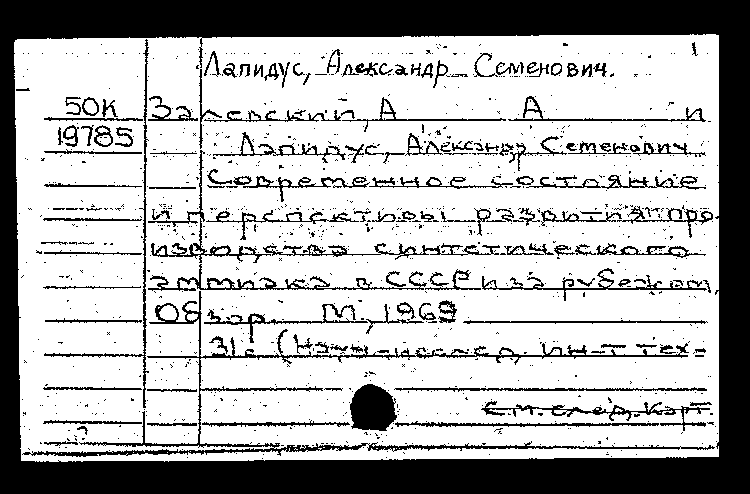 1
Лапидус, Александр Семенович.
50К Залевский, А А и
19785 Лапидус, Александр Семенович
Современное состояние
и перспективы развития про-
изводства синтетического
аммиака в СССР и за рубежом.
Обзор. М., 1969
31с (Научн-исслед. ин-т тех-
См. след. карт.